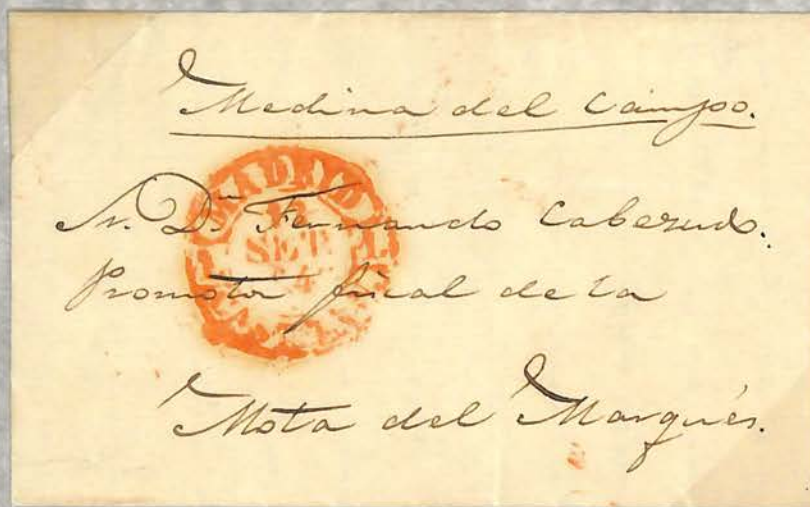 Medina del Campo.
MADRID
SET
Sr. Dn Fernando Cabezudo.
Promotor fiscal de la
Mota del Marqués.